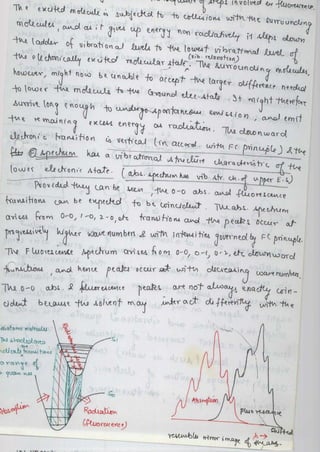 sequence of steps involved in fluorescence.
The excited molecule is subjected to collisions with the surrounding
molecules, and as it gives up energy non radiatively it steps down
the ladder of vibrational levels to the lowest vibrational level of
(vib. relaxation)
the electronically excited molecular state. The surrounding molecules,
however, might now be unable to accept the larger difference needed
to lower the molecule to the Ground elec. state. It might therefore
survive long enough to undergo spontaneous emission, and emit
the remaining excess energy as radiation. The downward
electronic transition is vertical (in accord. with FC principle) & the
spectrum has a vibrational structure characteristic of the
lower electronic state. (abs. spectrum has vib. str. ch. of upper E.S)
Provided they can be seen, the 0-0 abs. and fluorescence
transitions can be expected to be coincident. The abs. spectrum
arises from 0-0, 1-0, 2-0, etc transitions and the peaks occur at
progressively higher wavenumbers & with intensities governed by FC principle.
The Fluorescence spectrum arises from 0-0, 0-1, 0-2, etc downward
transitions, and hence peaks occur at with decreasing wavenumbers.
The 0-0 abs. & fluorescence peaks are not always exactly coin-
cident because the solvent may interact differently with the
diatomic molecules
The shaded area
indicates transitions
a range of
Absorption
Radiation
(fluorescence)
Absorption
Fluorescence
λ→
Shifted
resembles mirror image of the abs.